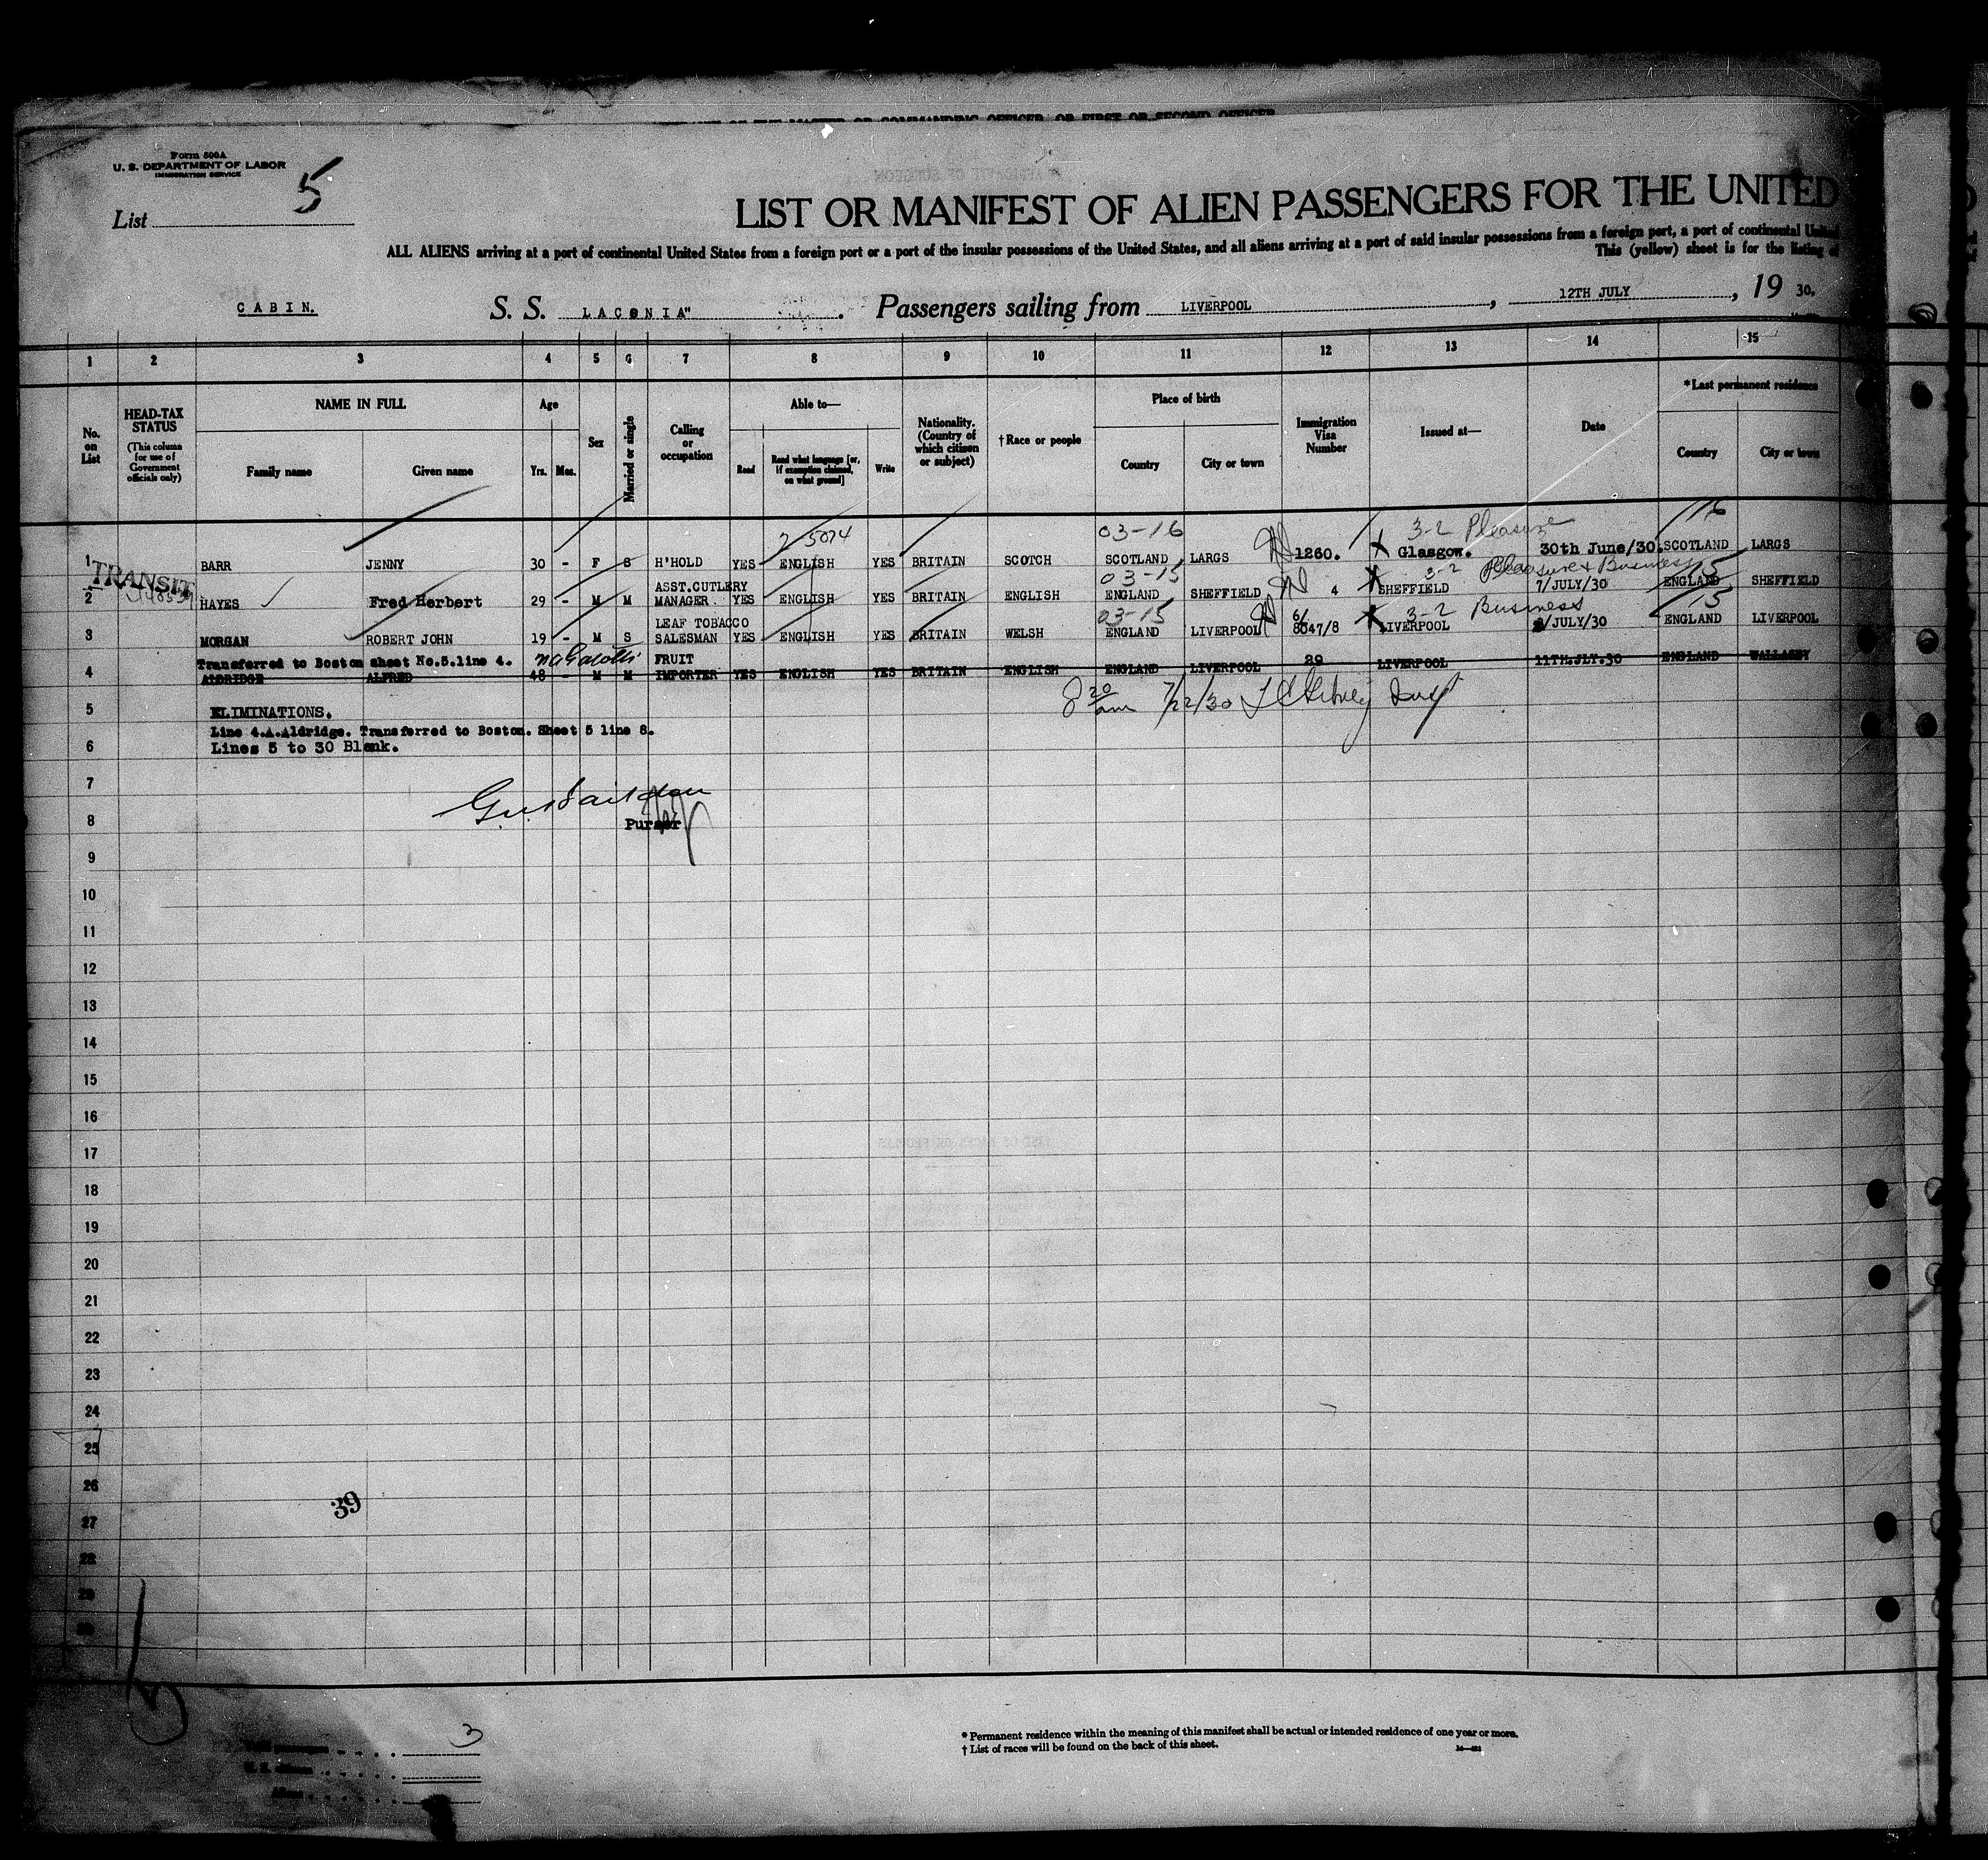 Form 500A
U. S. DEPARTMENT OF LABOR
IMMIGRATION SERVICE
List 5
LIST OR MANIFEST OF ALIEN PASSENGERS FOR THE UNITED
ALL ALIENS arriving at a port of continental United States from a foreign port or a port of the insular possessions of the United States, and all aliens arriving at a port of said insular possessions from a foreign port, a port of continental United
This (yellow) sheet is for the listing of
CABIN. S. S. LACONIA" Passengers sailing from LIVERPOOL, 12TH JULY, 19 30.
1 2 3 4 5 6 7 8 9 10 11 12 13 14 15
No. on List
HEAD-TAX STATUS (This column for use of Government officials only)
NAME IN FULL
Family name Given name
Age
Yrs. Mos.
Sex
Married or single
Calling or occupation
Able to—
Read Read what language [or, if exemption claimed, on what ground] Write
Nationality. (Country of which citizen or subject)
† Race or people
Place of birth
Country City or town
Immigration Visa Number
Issued at—
Date
* Last permanent residence
Country City or town
2/5074 03-16 3-2 Pleasure 116
1 BARR JENNY 30 - F S H'HOLD YES ENGLISH YES BRITAIN SCOTCH SCOTLAND LARGS 1260. Glasgow. 30th June/30. SCOTLAND LARGS
TRANSIT
03-15 3-2 Pleasure & Business 15
2 HAYES Fred Herbert 29 - M M ASST.CUTLERY MANAGER YES ENGLISH YES BRITAIN ENGLISH ENGLAND SHEFFIELD 4 SHEFFIELD 7/JULY/30 ENGLAND SHEFFIELD
03-15 3-2 Business 15
3 MORGAN ROBERT JOHN 19 - M S LEAF TOBACCO SALESMAN YES ENGLISH YES BRITAIN WELSH ENGLAND LIVERPOOL 6/ 8047/8 LIVERPOOL /JULY/30 ENGLAND LIVERPOOL
Transferred to Boston sheet No.5.line 4.
4 ALDRIDGE ALFRED 48 - M M FRUIT IMPORTER YES ENGLISH YES BRITAIN ENGLISH ENGLAND LIVERPOOL 29 LIVERPOOL 11TH.JLY.30 ENGLAND WALLASEY
8 20 am 7/22/30
5 ELIMINATIONS.
Line 4.A.Aldridge. Transferred to Boston. Sheet 5 line 8.
6 Lines 5 to 30 Blank.
7
8 Purser
9
10
11
12
13
14
15
16
17
18
19
20
21
22
23
24
25
26
39
27
28
29
30
3
* Permanent residence within the meaning of this manifest shall be actual or intended residence of one year or more.
† List of races will be found on the back of this sheet.